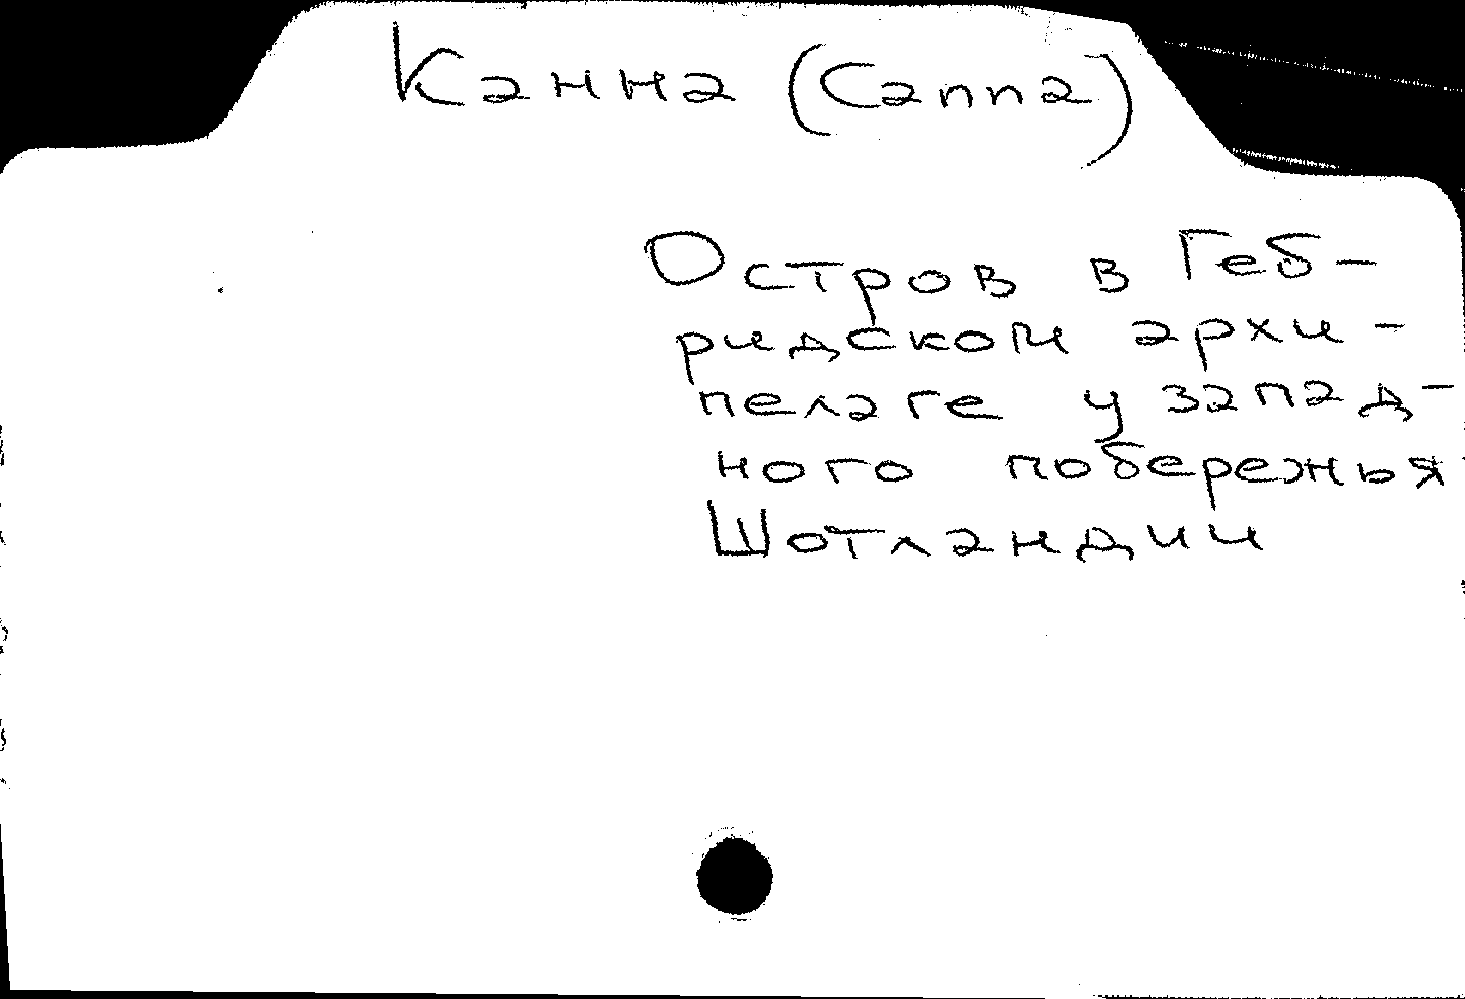 Канна (Canna)
Остров в Геб-
ридском архи-
пелаге у запад-
ного побережья
Шотландии